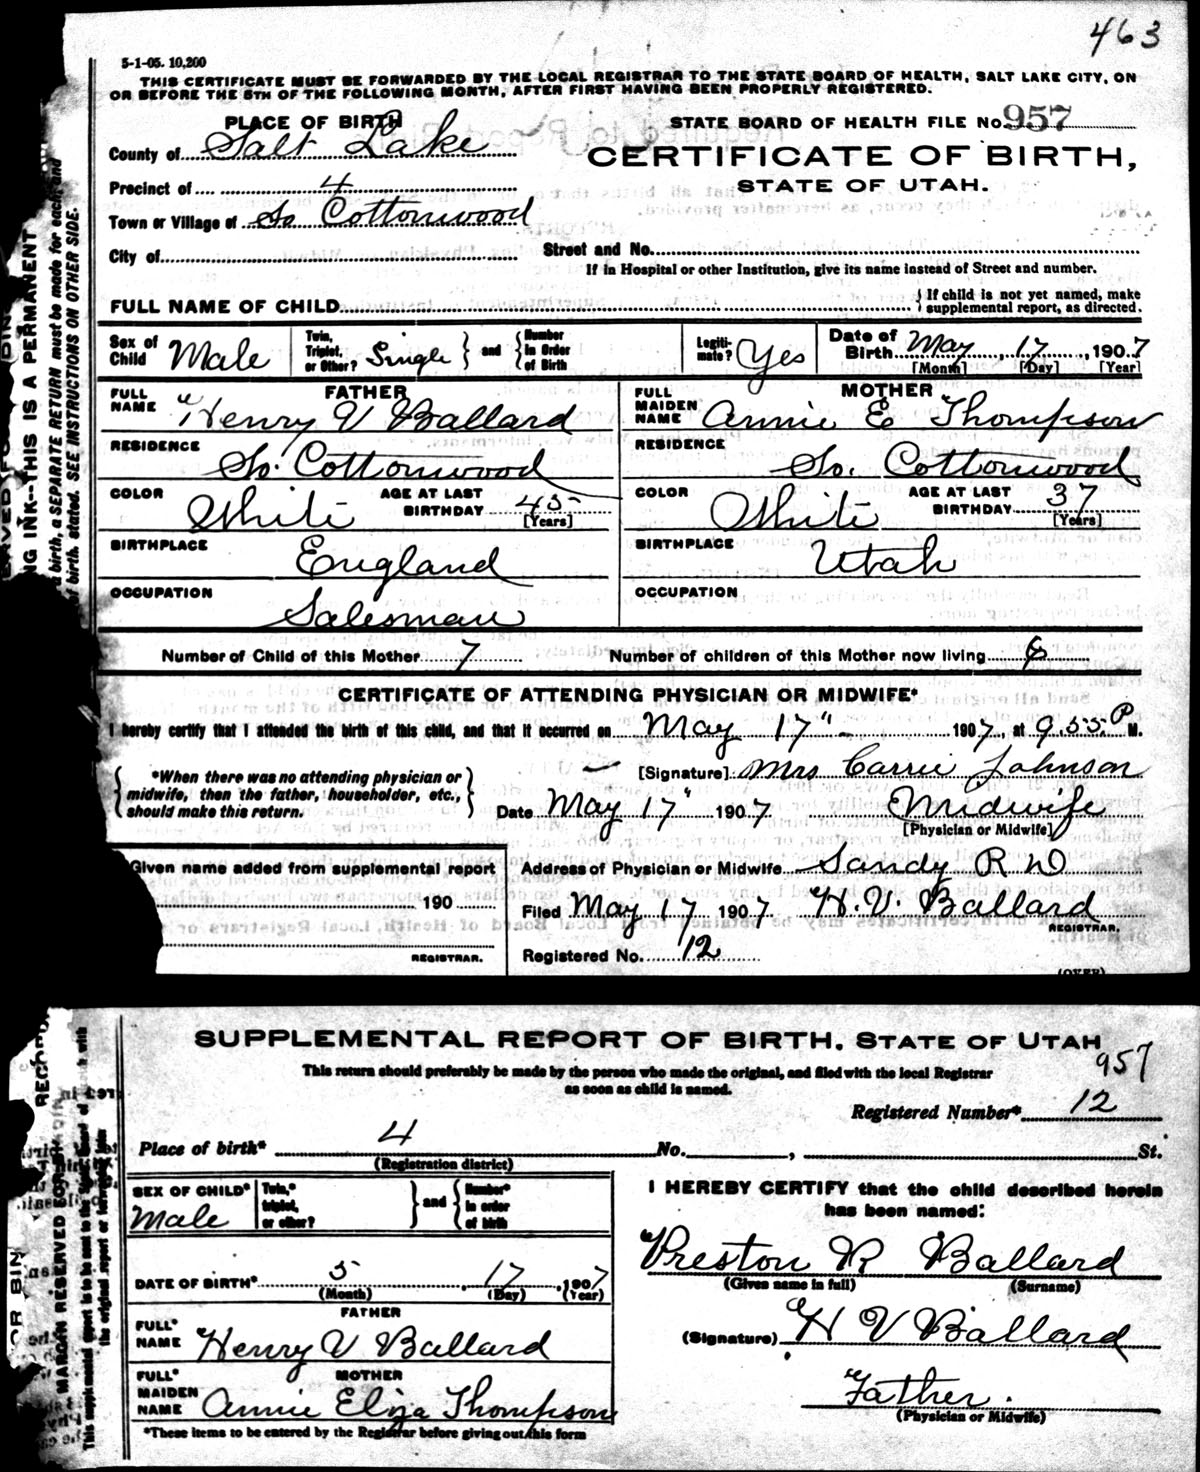 463
5-1-05. 10,200
THIS CERTIFICATE MUST BE FORWARDED BY THE LOCAL REGISTRAR TO THE STATE BOARD OF HEALTH, SALT LAKE CITY, ON
OR BEFORE THE 5TH OF THE FOLLOWING MONTH, AFTER FIRST HAVING BEEN PROPERLY REGISTERED.
PLACE OF BIRTH
STATE BOARD OF HEALTH FILE No. 957
County of Salt Lake
CERTIFICATE OF BIRTH,
Precinct of 4
STATE OF UTAH.
Town or Village of So Cottonwood
City of
Street and No.
If in Hospital or other Institution, give its name instead of Street and number.
FULL NAME OF CHILD
{ If child is not yet named, make
supplemental report, as directed.
Sex of Child Male
Twin, Triplet, or Other? Single } and { Number in Order of Birth
Legiti-mate? Yes
Date of Birth May 17, 1907
[Month] [Day] [Year]
FATHER
FULL NAME Henry V Ballard
RESIDENCE So. Cottonwood
COLOR White AGE AT LAST BIRTHDAY 45 [Years]
BIRTHPLACE England
OCCUPATION Salesman
MOTHER
FULL MAIDEN NAME Annie E Thompson
RESIDENCE So. Cottonwood
COLOR White AGE AT LAST BIRTHDAY 37 [Years]
BIRTHPLACE Utah
OCCUPATION
Number of Child of this Mother 7 Number of children of this Mother now living 6
CERTIFICATE OF ATTENDING PHYSICIAN OR MIDWIFE*
I hereby certify that I attended the birth of this child, and that it occurred on May 17" 1907, at 9.55 P M.
{ *When there was no attending physician or
midwife, then the father, householder, etc.,
should make this return. }
[Signature] Mrs Carrie Johnson
Date May 17" 1907 Midwife
[Physician or Midwife]
Given name added from supplemental report
190
REGISTRAR.
Address of Physician or Midwife Sandy R D
Filed May 17 1907 H. V. Ballard
REGISTRAR.
Registered No. 12
(OVER)
SUPPLEMENTAL REPORT OF BIRTH, STATE OF UTAH
957
This return should preferably be made by the person who made the original, and filed with the local Registrar
as soon as child is named.
Registered Number* 12
Place of birth* 4 No. , St.
(Registration district)
SEX OF CHILD* Male
Twin,* triplet, or other? } and { Number* in order of birth
DATE OF BIRTH* 5 17, 1907
(Month) (Day) (Year)
FATHER
FULL* NAME Henry V Ballard
MOTHER
FULL* MAIDEN NAME Annie Eliza Thompson
*These items to be entered by the Registrar before giving out this form
I HEREBY CERTIFY that the child described herein
has been named:
Preston R Ballard
(Given name in full) (Surname)
(Signature) H V Ballard
Father.
(Physician or Midwife)